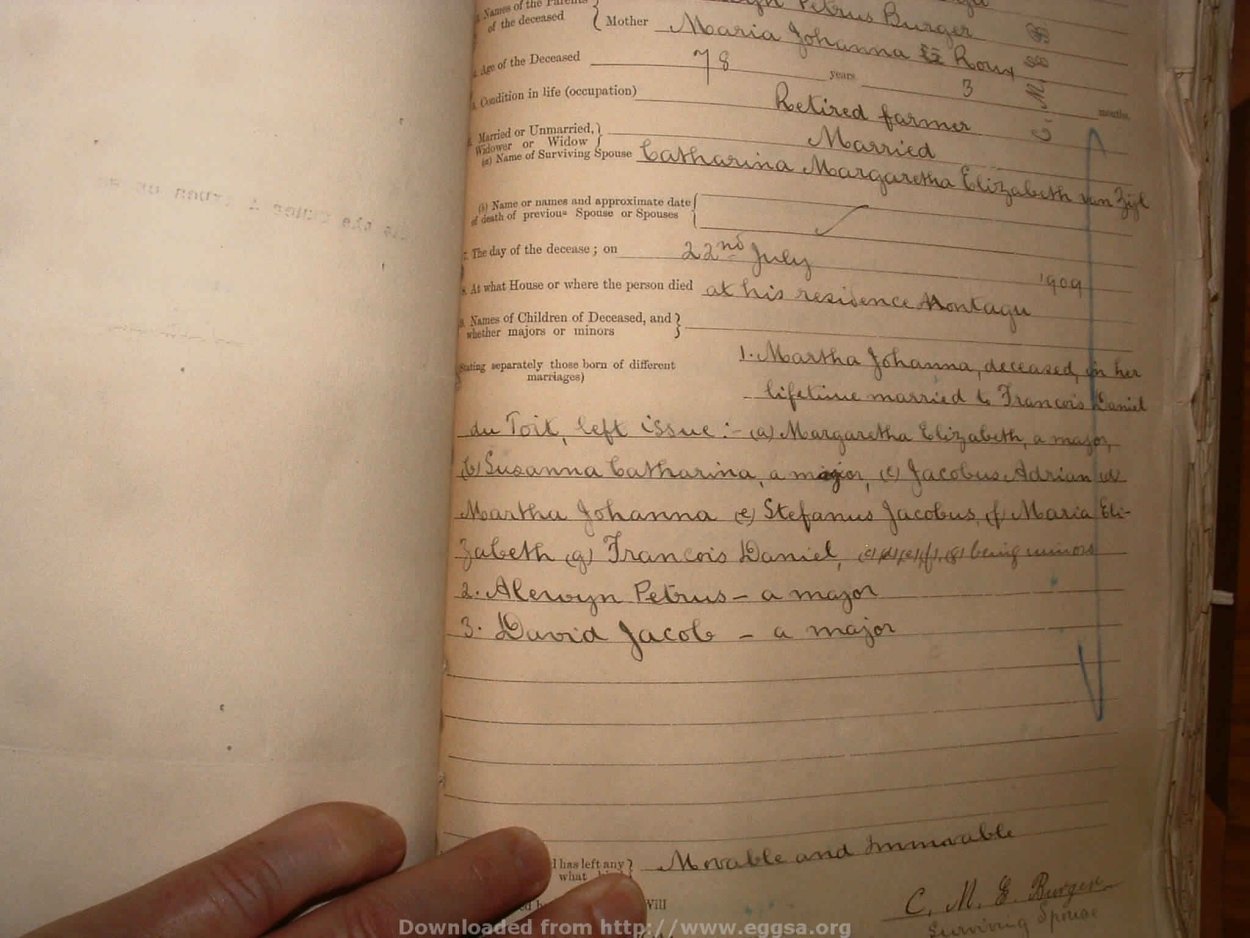 3. Names of the Parents
of the deceased
Petrus Burger
Mother Maria Johanna Roux
4. Age of the Deceased 78 years 3 months.
5. Condition in life (occupation) Retired farmer
6. Married or Unmarried, Married
Widower or Widow
(a) Name of Surviving Spouse Catharina Margaretha Elizabeth van Zijl
(b) Name or names and approximate date
of death of previous Spouse or Spouses
7. The day of the decease ; on 22nd July 1909
8. At what House or where the person died at his residence Montagu
9. Names of Children of Deceased, and
whether majors or minors
stating separately those born of different
marriages)
1. Martha Johanna, deceased, in her
lifetime married to Francois Daniel
du Toit, left issue :- (a) Margaretha Elizabeth, a major,
(b) Susanna Catharina, a major, (c) Jacobus Adrian (d)
Martha Johanna (e) Stefanus Jacobus, (f) Maria Eli-
zabeth (g) Francois Daniel, (c), (d), (e), (f), (g) being minors
2. Alewyn Petrus - a major
3. David Jacob - a major
has left any
what
Movable and Immovable
Will
C. M. E. Burger
Surviving Spouse
Downloaded from http://www.eggsa.org